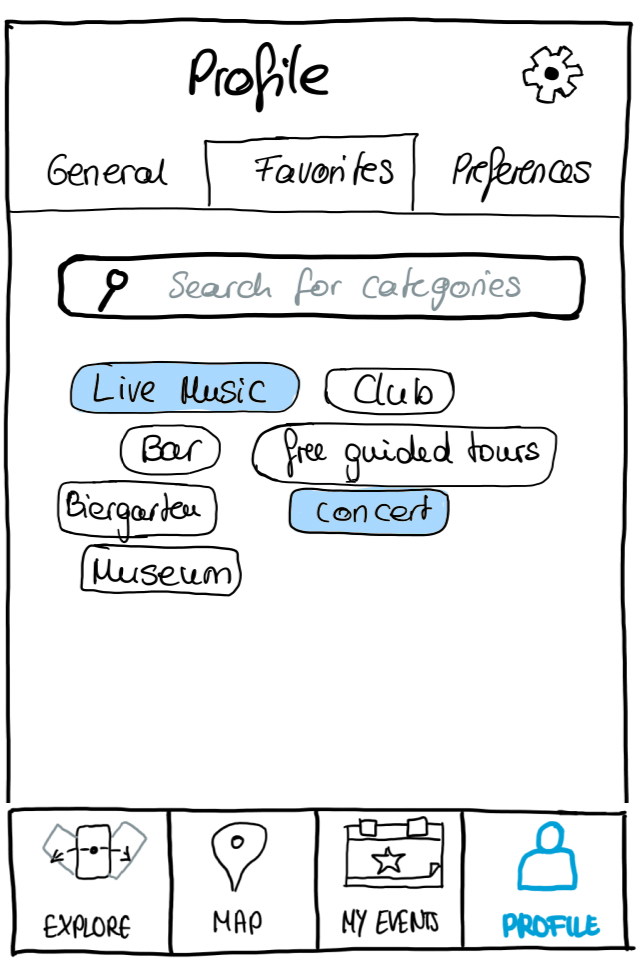 Profile
General Favorites Preferences
Search for categories
Live Music Club
Bar free guided tours
Biergarten concert
Museum
EXPLORE MAP MY EVENTS PROFILE